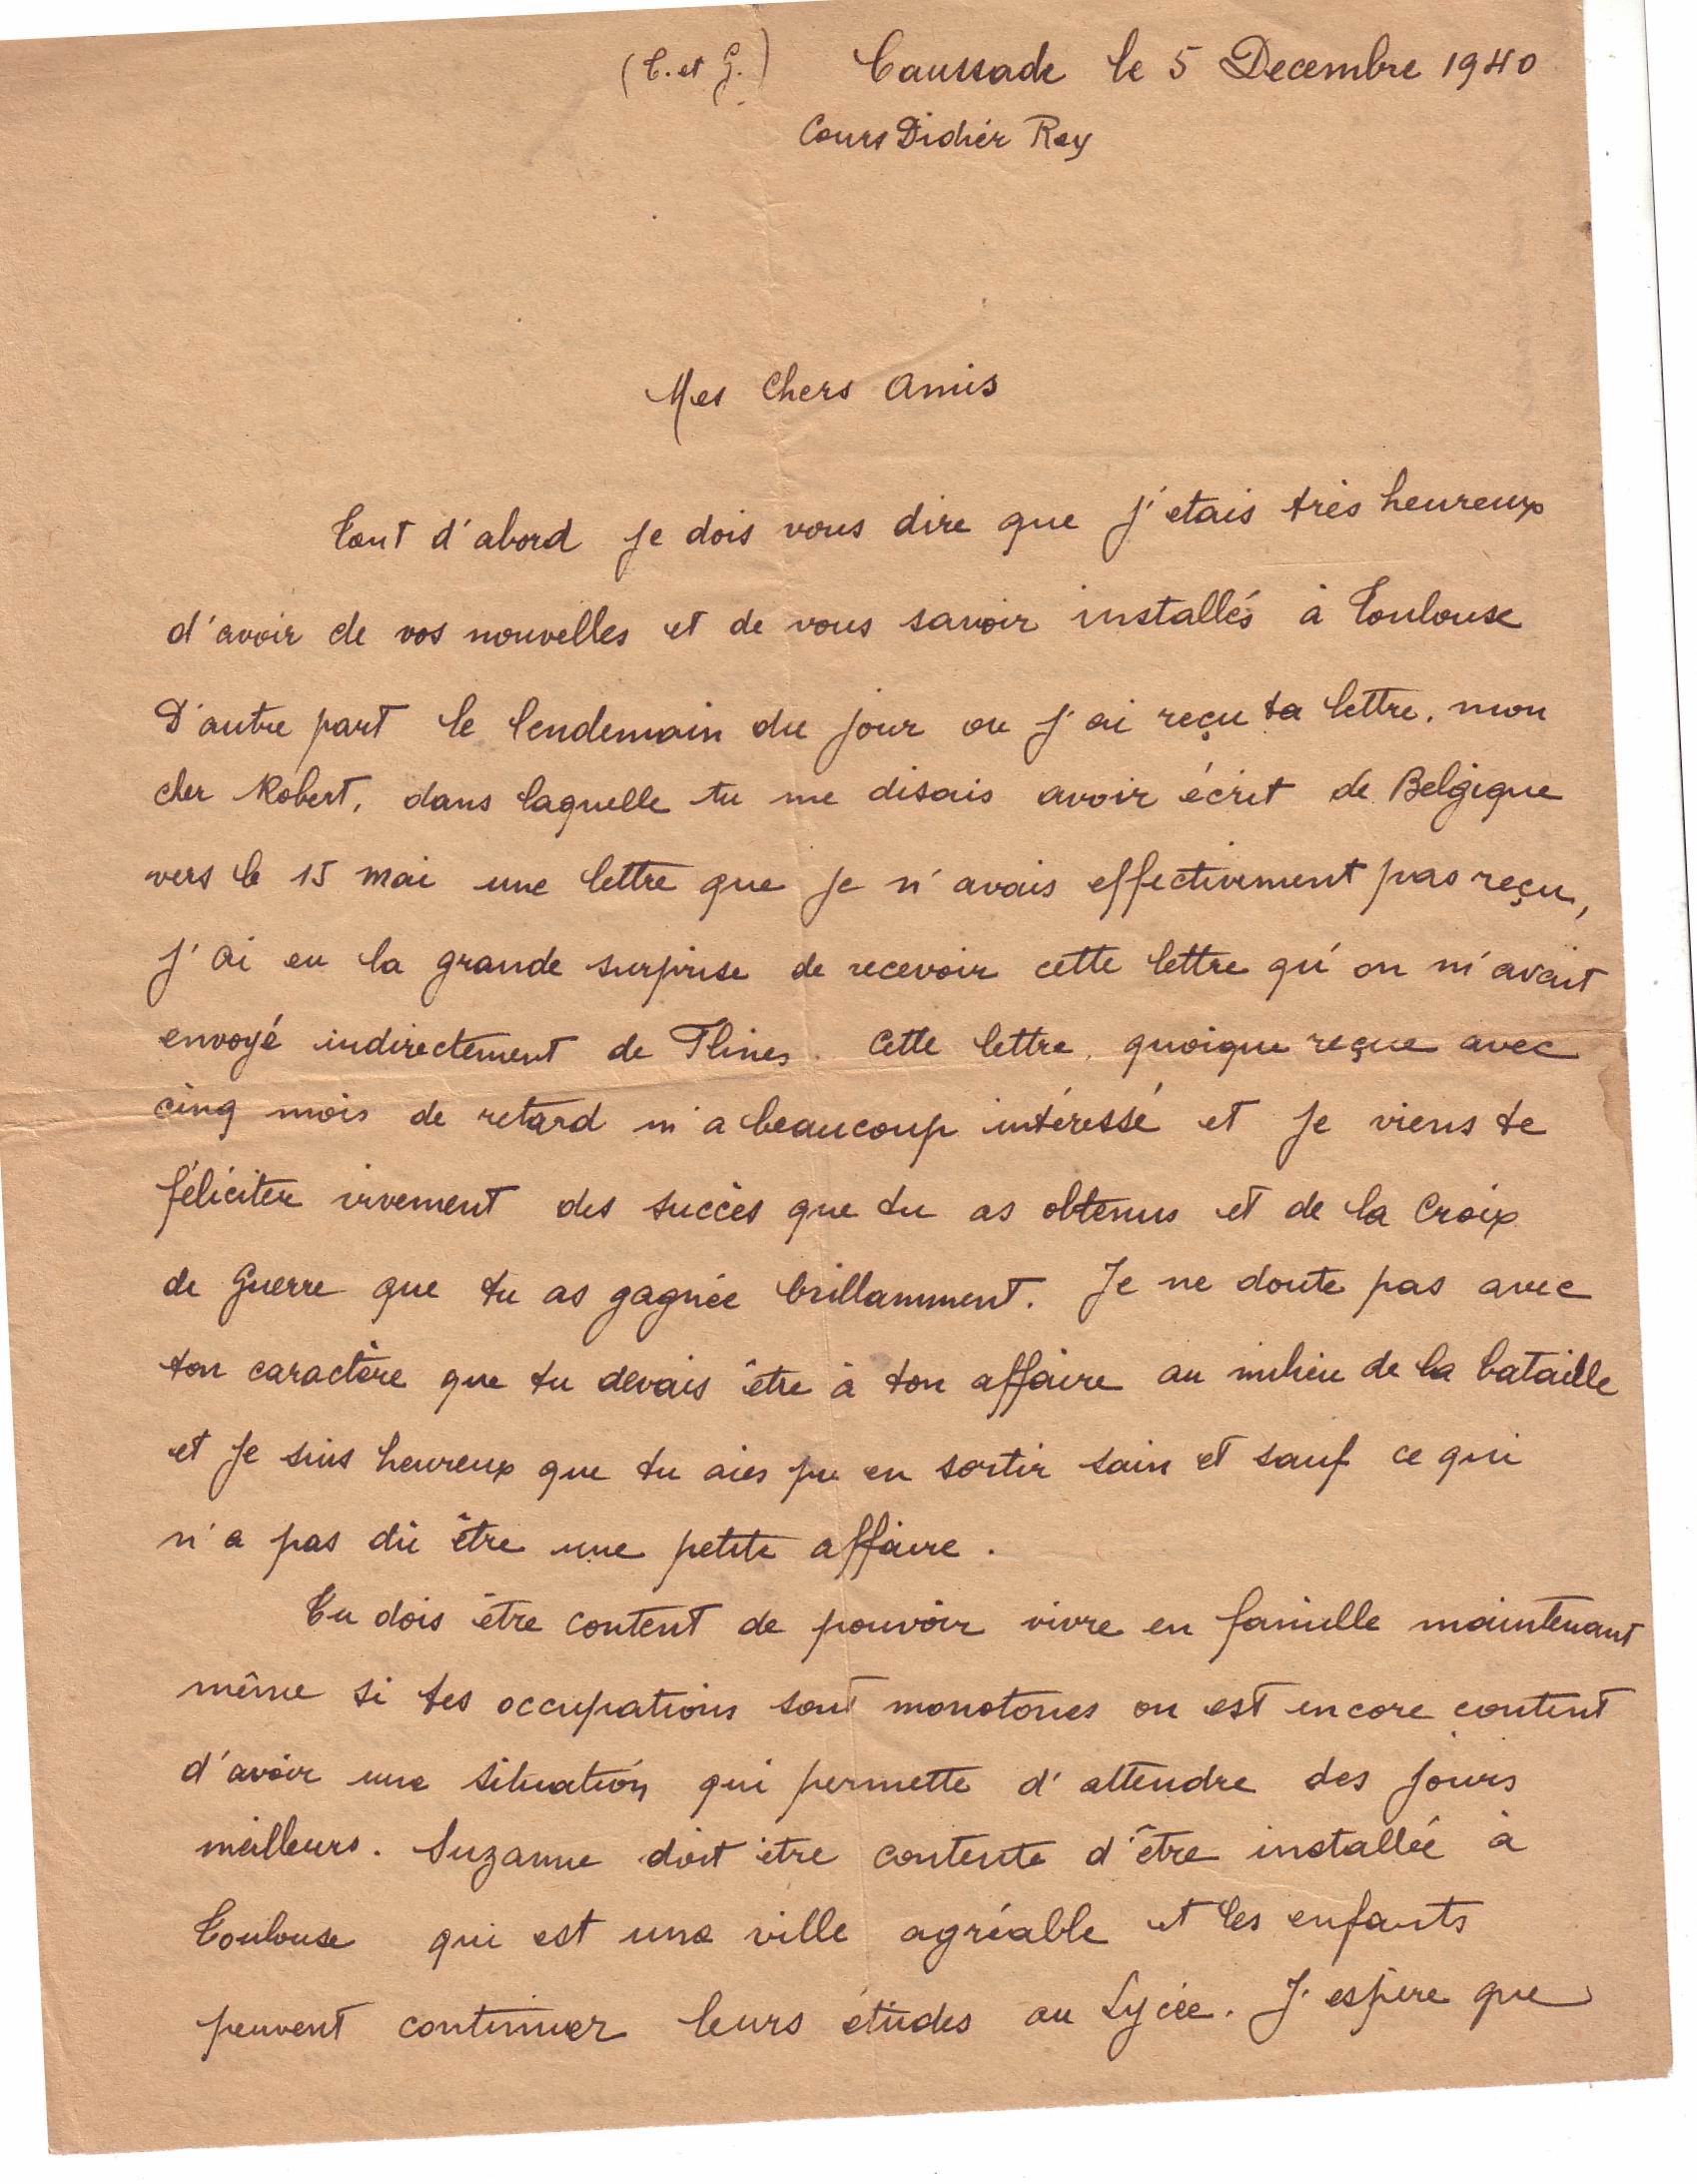 (T. et G.) Caussade le 5 Decembre 1940
Cours Didier Rey
Mes Chers Amis
Tout d'abord je dois vous dire que j'etais très heureux
d'avoir de vos nouvelles et de vous savoir installés à Toulouse
D'autre part le lendemain du jour ou j'ai reçu ta lettre, mon
cher Robert, dans laquelle tu me disais avoir écrit de Belgique
vers le 15 mai une lettre que je n'avais effectivement pas reçu,
j'ai eu la grande surprise de recevoir cette lettre qu'on m'avait
envoyé indirectement de Flines. Cette lettre, quoique reçue avec
cinq mois de retard m'a beaucoup intéressé et je viens te
féliciter vivement des succès que tu as obtenus et de la Croix
de Guerre que tu as gagnée brillamment. Je ne doute pas avec
ton caractère que tu devais être à ton affaire au milieu de la bataille
et je suis heureux que tu aies pu en sortir sain et sauf ce qui
n'a pas dû être une petite affaire.
Tu dois être content de pouvoir vivre en famille maintenant
même si tes occupations sont monotones on est encore content
d'avoir une situation qui permette d'attendre des jours
meilleurs. Suzanne doit être contente d'être installée à
Toulouse qui est une ville agréable et les enfants
peuvent continuer leurs études au Lycée. J'espère que